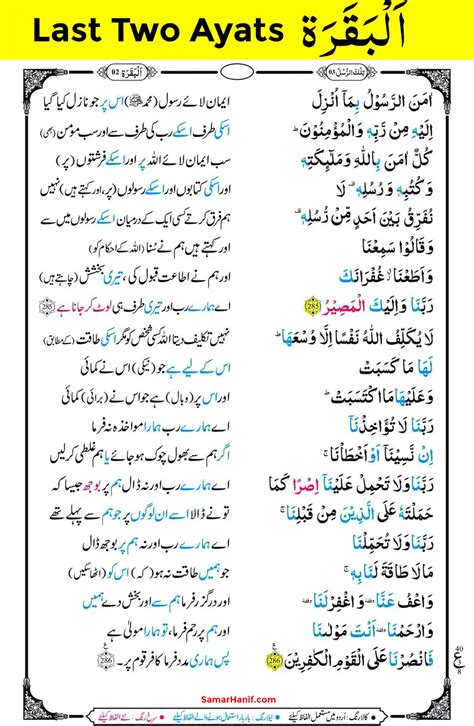 Last Two Ayats اَلْبَقَرَة
تِلْكَ الرُّسُلُ 03 اَلْبَقَرَة 02
اٰمَنَ الرَّسُوْلُ بِمَاۤ اُنْزِلَ ایمان لائے رسول (محمدﷺ) اس پر جو نازل کیا گیا
اِلَيْهِ مِنْ رَّبِّهٖ وَالْمُؤْمِنُوْنَ ؕ اسکی طرف اسکے رب کی طرف سے اور سب مومن (بھی)
كُلٌّ اٰمَنَ بِاللّٰهِ وَمَلٰٓئِكَتِهٖ سب ایمان لائے اللہ پر اور اسکے فرشتوں (پر)
وَكُتُبِهٖ وَرُسُلِهٖ ۟ لَا اور اسکی کتابوں اور اسکے رسولوں (پر) نہیں
نُفَرِّقُ بَيْنَ اَحَدٍ مِّنْ رُّسُلِهٖ ۟ ہم فرق کرتے کسی ایک کے درمیان اسکے رسولوں میں سے
وَقَالُوْا سَمِعْنَا اور انہوں نے کہا ہم نے سُنا (اللہ کے احکام کو)
وَاَطَعْنَا ٭ غُفْرَانَكَ اور ہم نے اطاعت قبول کی ، تیری بخشش (چاہتے ہیں)
رَبَّنَا وَاِلَيْكَ الْمَصِيْرُ 285 اے ہمارے رب اور تیری طرف ہی لوٹ کر جانا ہے 285
لَا يُكَلِّفُ اللّٰهُ نَفْسًا اِلَّا وُسْعَهَا ؕ نہیں تکلیف دیتا اللہ کسی شخص کو مگر اسکی طاقت (کے مطابق)
لَهَا مَا كَسَبَتْ اس کے لیے ہے جو (نیکی) اس نے کمائی
وَعَلَيْهَا مَا اكْتَسَبَتْ ؕ اور اس پر (وبال) ہے جو اس نے (برائی) کمائی
رَبَّنَا لَا تُؤَاخِذْنَاۤ اے ہمارے رب ہمارا مواخذہ نہ فرما
اِنْ نَّسِيْنَاۤ اَوْ اَخْطَاْنَا ۚ اگر ہم سے بھول چوک ہو جائے یا ہم غلطی کر لیں
رَبَّنَا وَلَا تَحْمِلْ عَلَيْنَاۤ اِصْرًا كَمَا اے ہمارے رب اور نہ ڈال ہم پر بوجھ جیسا کہ
حَمَلْتَهٗ عَلَى الَّذِيْنَ مِنْ قَبْلِنَا ۚ تو نے ڈالا اسے ان لوگوں پر جو ہم سے پہلے تھے
رَبَّنَا وَلَا تُحَمِّلْنَا اے ہمارے رب اور نہ ہم پر بوجھ ڈال
مَا لَا طَاقَةَ لَنَا بِهٖ ۚ جو ہمیں طاقت نہ ہو (کہ) اس کو (اٹھا سکیں)
وَاعْفُ عَنَّا وَاغْفِرْ لَنَا اور درگزر فرما ہم سے اور بخش دے ہمیں
وَارْحَمْنَا اَنْتَ مَوْلٰىنَا اور ہم پر رحم فرما ، تو ہمارا مولیٰ ہے
فَانْصُرْنَا عَلَى الْقَوْمِ الْكٰفِرِيْنَ 286 پس ہماری مدد فرما کافر قوم پر۔ 286
ع 40
SamarHanif.com
کالا رنگ: اُردو میں مستعمل الفاظ کیلئے نیلا رنگ: بار بار استعمال ہونے والے الفاظ کیلئے سرخ رنگ: نئے الفاظ کیلئے